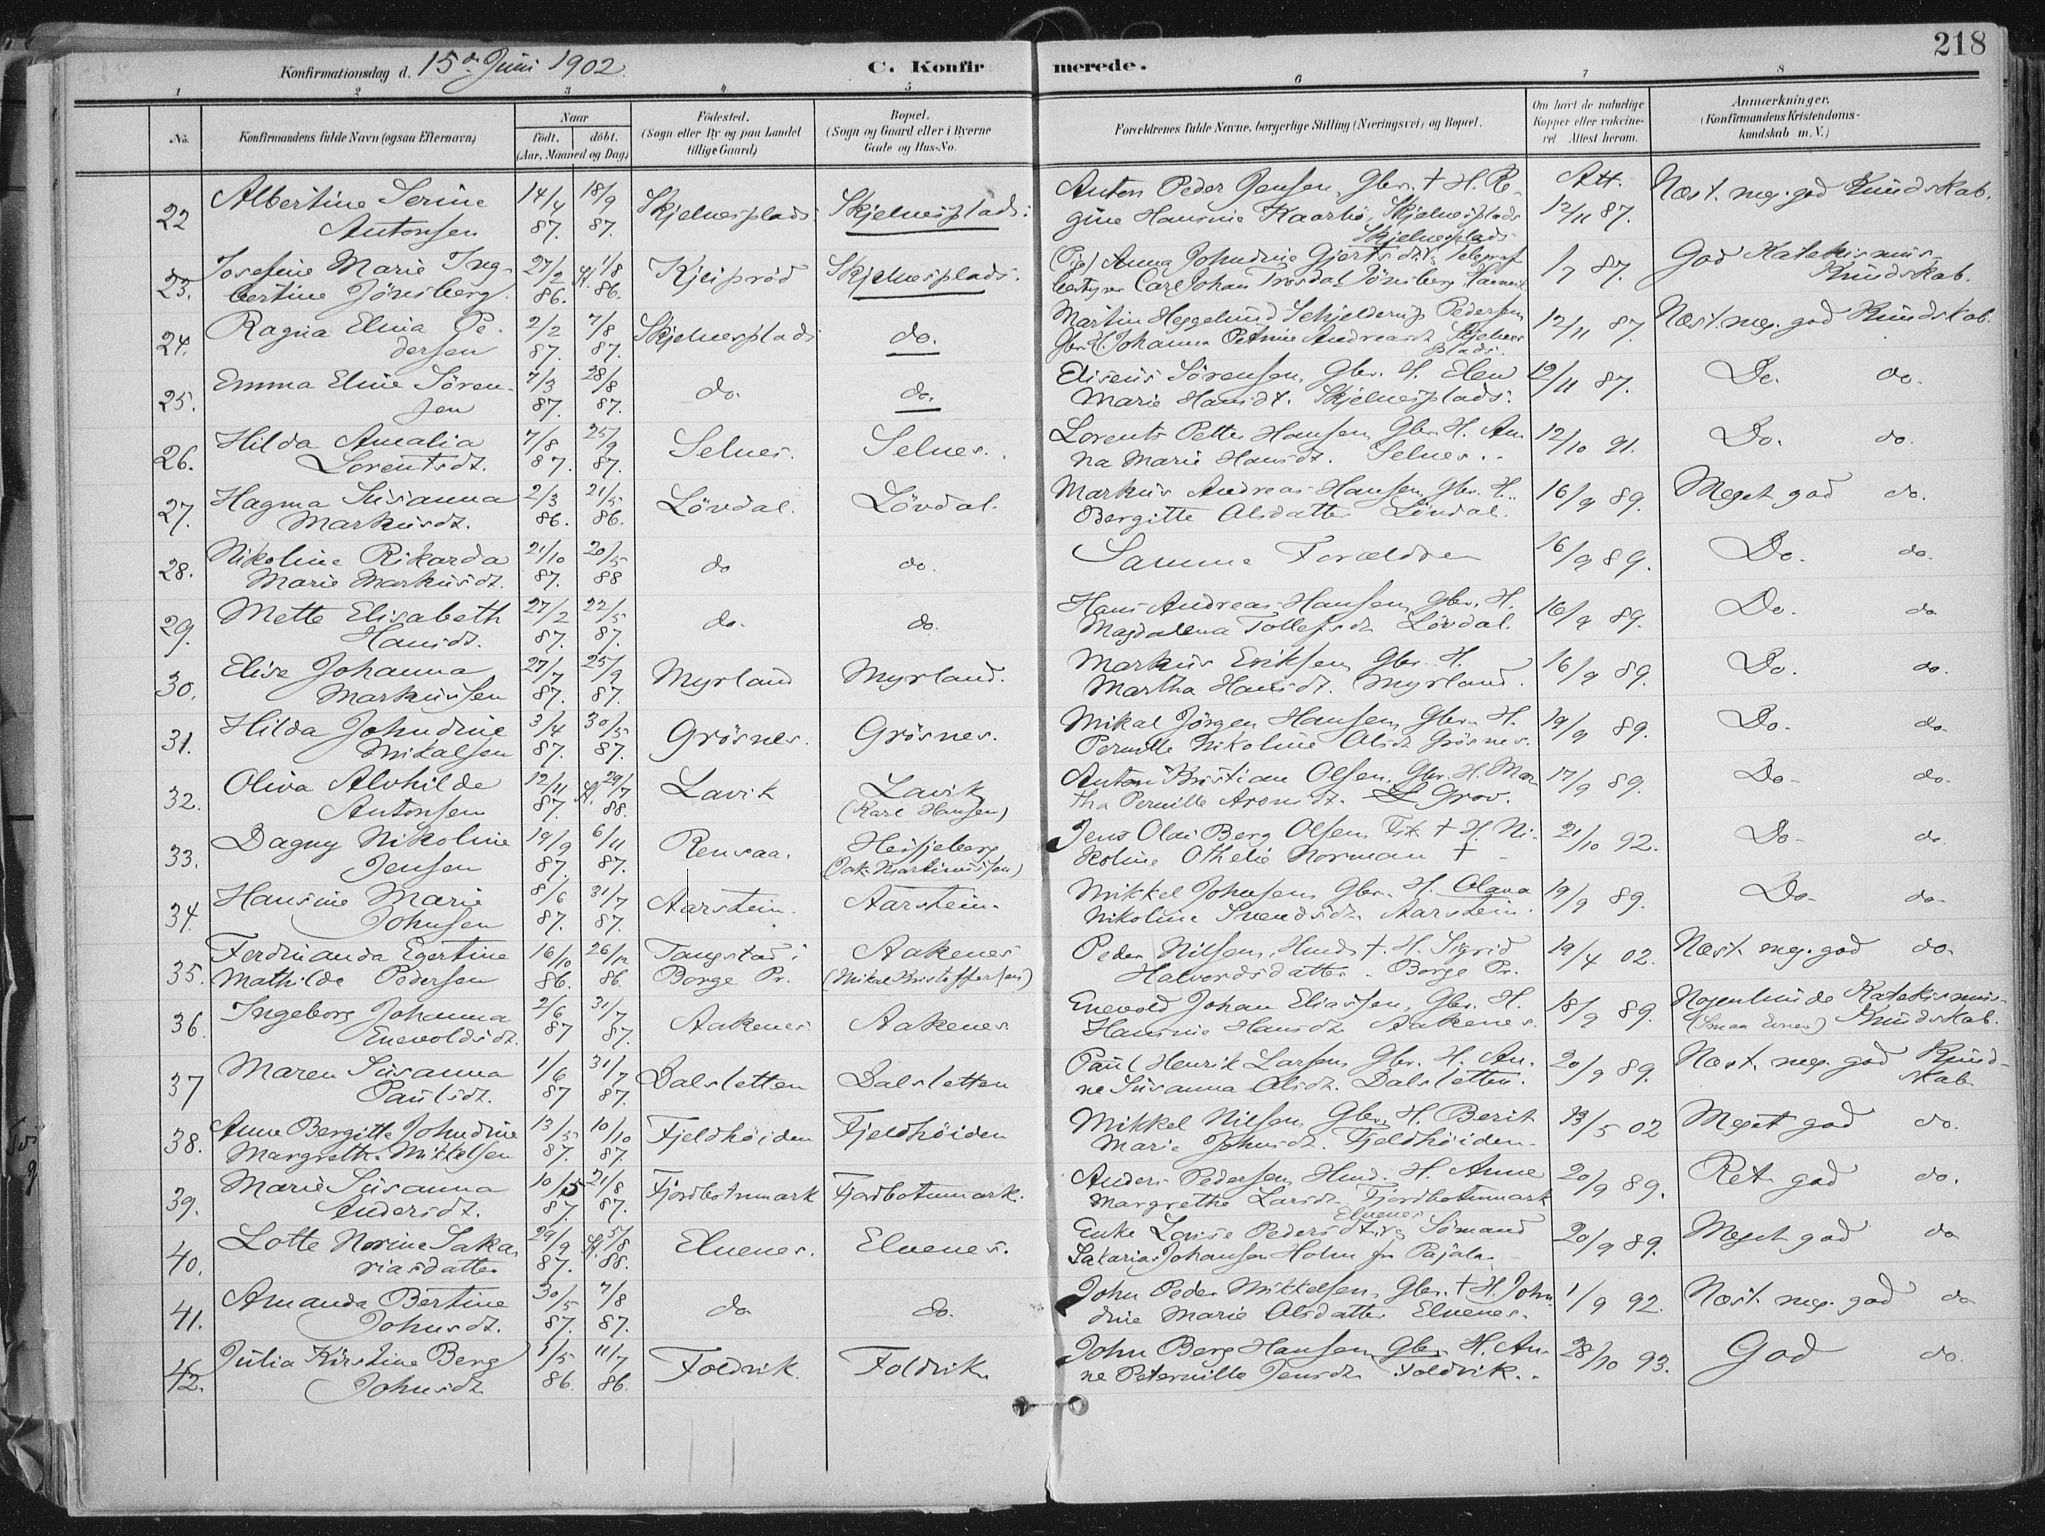 218
Konfirmationsdag d. 15de Juni 1902.
C. Konfirmerede.
1 2 3 4 5 6 7 8
No.
Konfirmandens fulde Navn (ogsaa Efternavn)
Naar
födt. döbt.
(Aar, Maaned og Dag)
Födested.
(Sogn eller By og paa Landet
tillige Gaard)
Bopæl.
(Sogn og Gaard eller i Byerne
Gade og Hus-No.
Forældrenes fulde Navne, borgerlige Stilling (Næringsvei) og Bopæl.
Om havt de naturlige
Kopper eller vakcine-
ret Attest herom.
Anmærkninger.
(Konfirmandens Kristendoms-
kundskab m. V.)
22 Albertine Serine 14/4 18/9 Skjelnesplads Skjelnesplads. Anton Peder Jensen, Gbr. † H. Re- Att. Næst. meg. god Kundskab.
Antonsen 87. 87. gine Hansine Kaarbö, Skjelnesplads 12/11 87.
Skjelnesplads
23. Josefine Marie Ing- 27/2 K. 1/8 Kjeiprød Skjelnesplads. (Pge) Anna Johndine Gjertsdt. Telegraf 1/7 87. God Katekismus-
bertine Jönsberg. 86. 86. bestyrer Carl Johan Trosdal Jönsberg Kundskab.
24. Ragna Elina Pe- 2/2 7/8 Skjelnesplads do. Martin Heggelund Schjelderup Pedersen 12/11 87. Næst. meg. god Kundskab.
dersen 87. 87. Gbr. H. Johanna Petrine Andreasdt. Skjelnes
plads.
25. Emma Eline Sören- 7/3 28/8 do. do. Eliseus Sörensen, Gbr. H. Elen 12/11 87. Do. do.
sen 87. 87. Marie Hansdt. Skjelnesplads.
26. Hilda Amalia 7/8 25/9 Selnes. Selnes. Lorents Petter Hansen, Gbr. H. An- 12/10 91. Do. do.
Lorentsdt. 87. 87. na Marie Hansdt. Selnes.
27. Hagma Susanna 2/3 21/5 Lövdal. Lövdal. Markus Andreas Hansen, Gbr. H. 16/9 89. Meget god do.
Markusdt. 86. 86. Bergitte Olsdatter Lövdal.
28. Nikoline Rikarda 21/10 20/5 do do. Samme Forældre 16/9 89. Do. do.
Marie Markusdt. 87. 88
29. Mette Elisabeth 27/2 22/5 do. do. Hans Andreas Hansen, Gbr. H. 16/9 89. Do. do
Hansdt. 87. 87. Magdalena Tollefsdt. Lövdal.
30. Elise Johanna 27/7 25/9 Myrland Myrland. Markus Eriksen, Gbr. H. 16/9 89. Do. do.
Markussen 87. 87. Martha Hansdt. Myrland.
31. Hilda Johndine 3/4 30/5 Grösnes. Grösnes. Mikal Jörgen Hansen, Gbr. H. 19/9 89. Do. do.
Mikalsen 87. 87. Pernille Nikoline Olsdt. Grösnes.
32. Oliva Alvhilde 12/11 K. 29/7 Lavik Lavik Anton Kristian Olsen, Gbr. H. Mar- 17/9 89. Do. do.
Antonsen 87. 88. (Karl Hansen) tha Pernille Aronsdt. Grov.
33. Dagny Nikoline 19/9 6/11 Rensaa. Heisjeberg Jens Olai Berg Olsen, Fisk. † H. Ni- 21/10 92. Do. do.
Jensen 87. 87. (Jak. Martinussen) koline Othelie Norman †
34. Hansine Marie 8/6 31/7 Aarstein. Aarstein. Mikkel Johnsen, Gbr. H. Olava 19/9 89. Do. do.
Johnsen 87. 87. Nikoline Svendsdt. Aarstein.
35. Ferdinanda Egertine 16/10 26/12 Tangstad i Aakenes Peder Nilsen, Hmd. † H. Sigrid 19/4 02. Næst. meg. god do.
Mathilde Pedersen 86. 86. Borge Pr. (Mikal Kristoffersen) Halvordsdatter. Borge Pr.
36. Ingeborg Johanna 2/6 31/7 Aakenes. Aakenes. Enevold Johan Eliassen, Gbr. H. 18/9 89. Nogenlunde Katekismus-
Enevoldsdt. 87 87. Hansine Hansdt. Aakenes. (Smaa Evner) Kundskab.
37 Maren Susanna 1/6 31/7 Dalsletten Dalsletten Paul Henrik Larsen, Gbr. H. An- 20/9 89. Næst. meg. god Kund-
Paulsdt. 87 87. ne Susanna Olsdt. Dalsletten. skab
38. Anne Bergitte Johndine 13/5 10/10 Fjeldhöiden Fjeldhöiden Mikkel Nilsen, Gbr. H. Berit 13/5 02 Meget god do.
Margrethe Mikkelsen 87. 87 Marie Johnsdt. Fjeldhöiden.
39. Marie Susanna 10/5 21/8 Fjordbotnmark Fjordbotnmark. Anders Pedersen, Hmd. H. Anne 20/9 89. Ret god do.
Andersdt. 87. 87. Margrethe Larsdt. Fjordbotnmark
Elvenes
40. Lotte Norine Saka- 29/9 K. 5/8 Elvenes. Elvenes. Enke Lovise Pedersdt. og Sömand 20/9 89. Meget god do
riasdatter 87. 88. Sakarias Johansen Holm fra Pajala.
41. Amanda Bertine 30/5 7/8 do do. John Peder Mikkelsen, Gbr. † H. John- 1/9 92. Næst. meg. god do
Johnsdt. 87. 87. dine Marie Olsdatter Elvenes.
42. Julia Kirstine Berg 1/5 11/7 Foldvik. Foldvik. John Berg Hansen, Gbr. H. An- 28/10 93. God do.
Johnsdt. 86. 86. ne Peternille Jensdt. Foldvik.